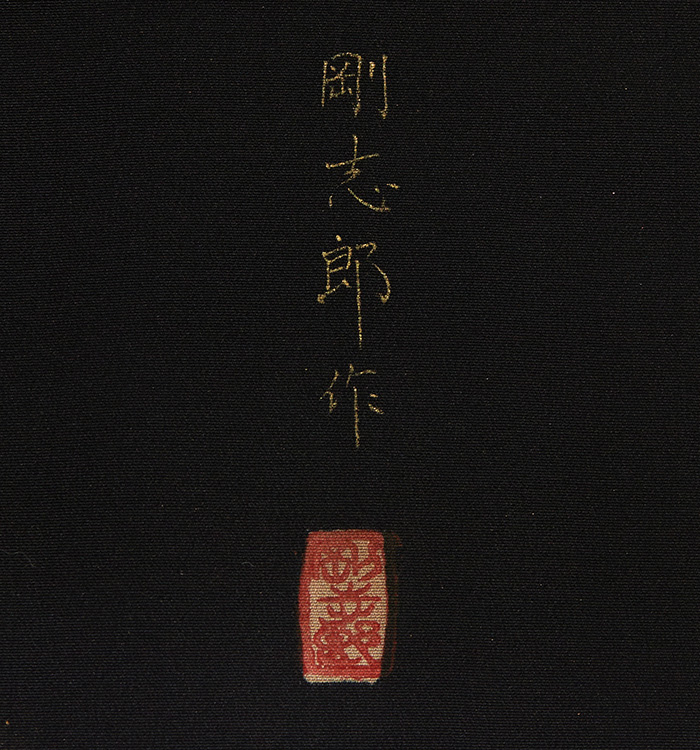 剛志郎作